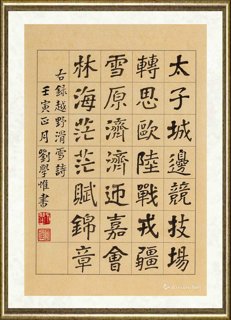 太子城邊競技場
轉思歐陸戰戎疆
雪原濟濟迎嘉會
林海茫茫賦錦章
右錄越野滑雪詩
壬寅正月劉學惟書